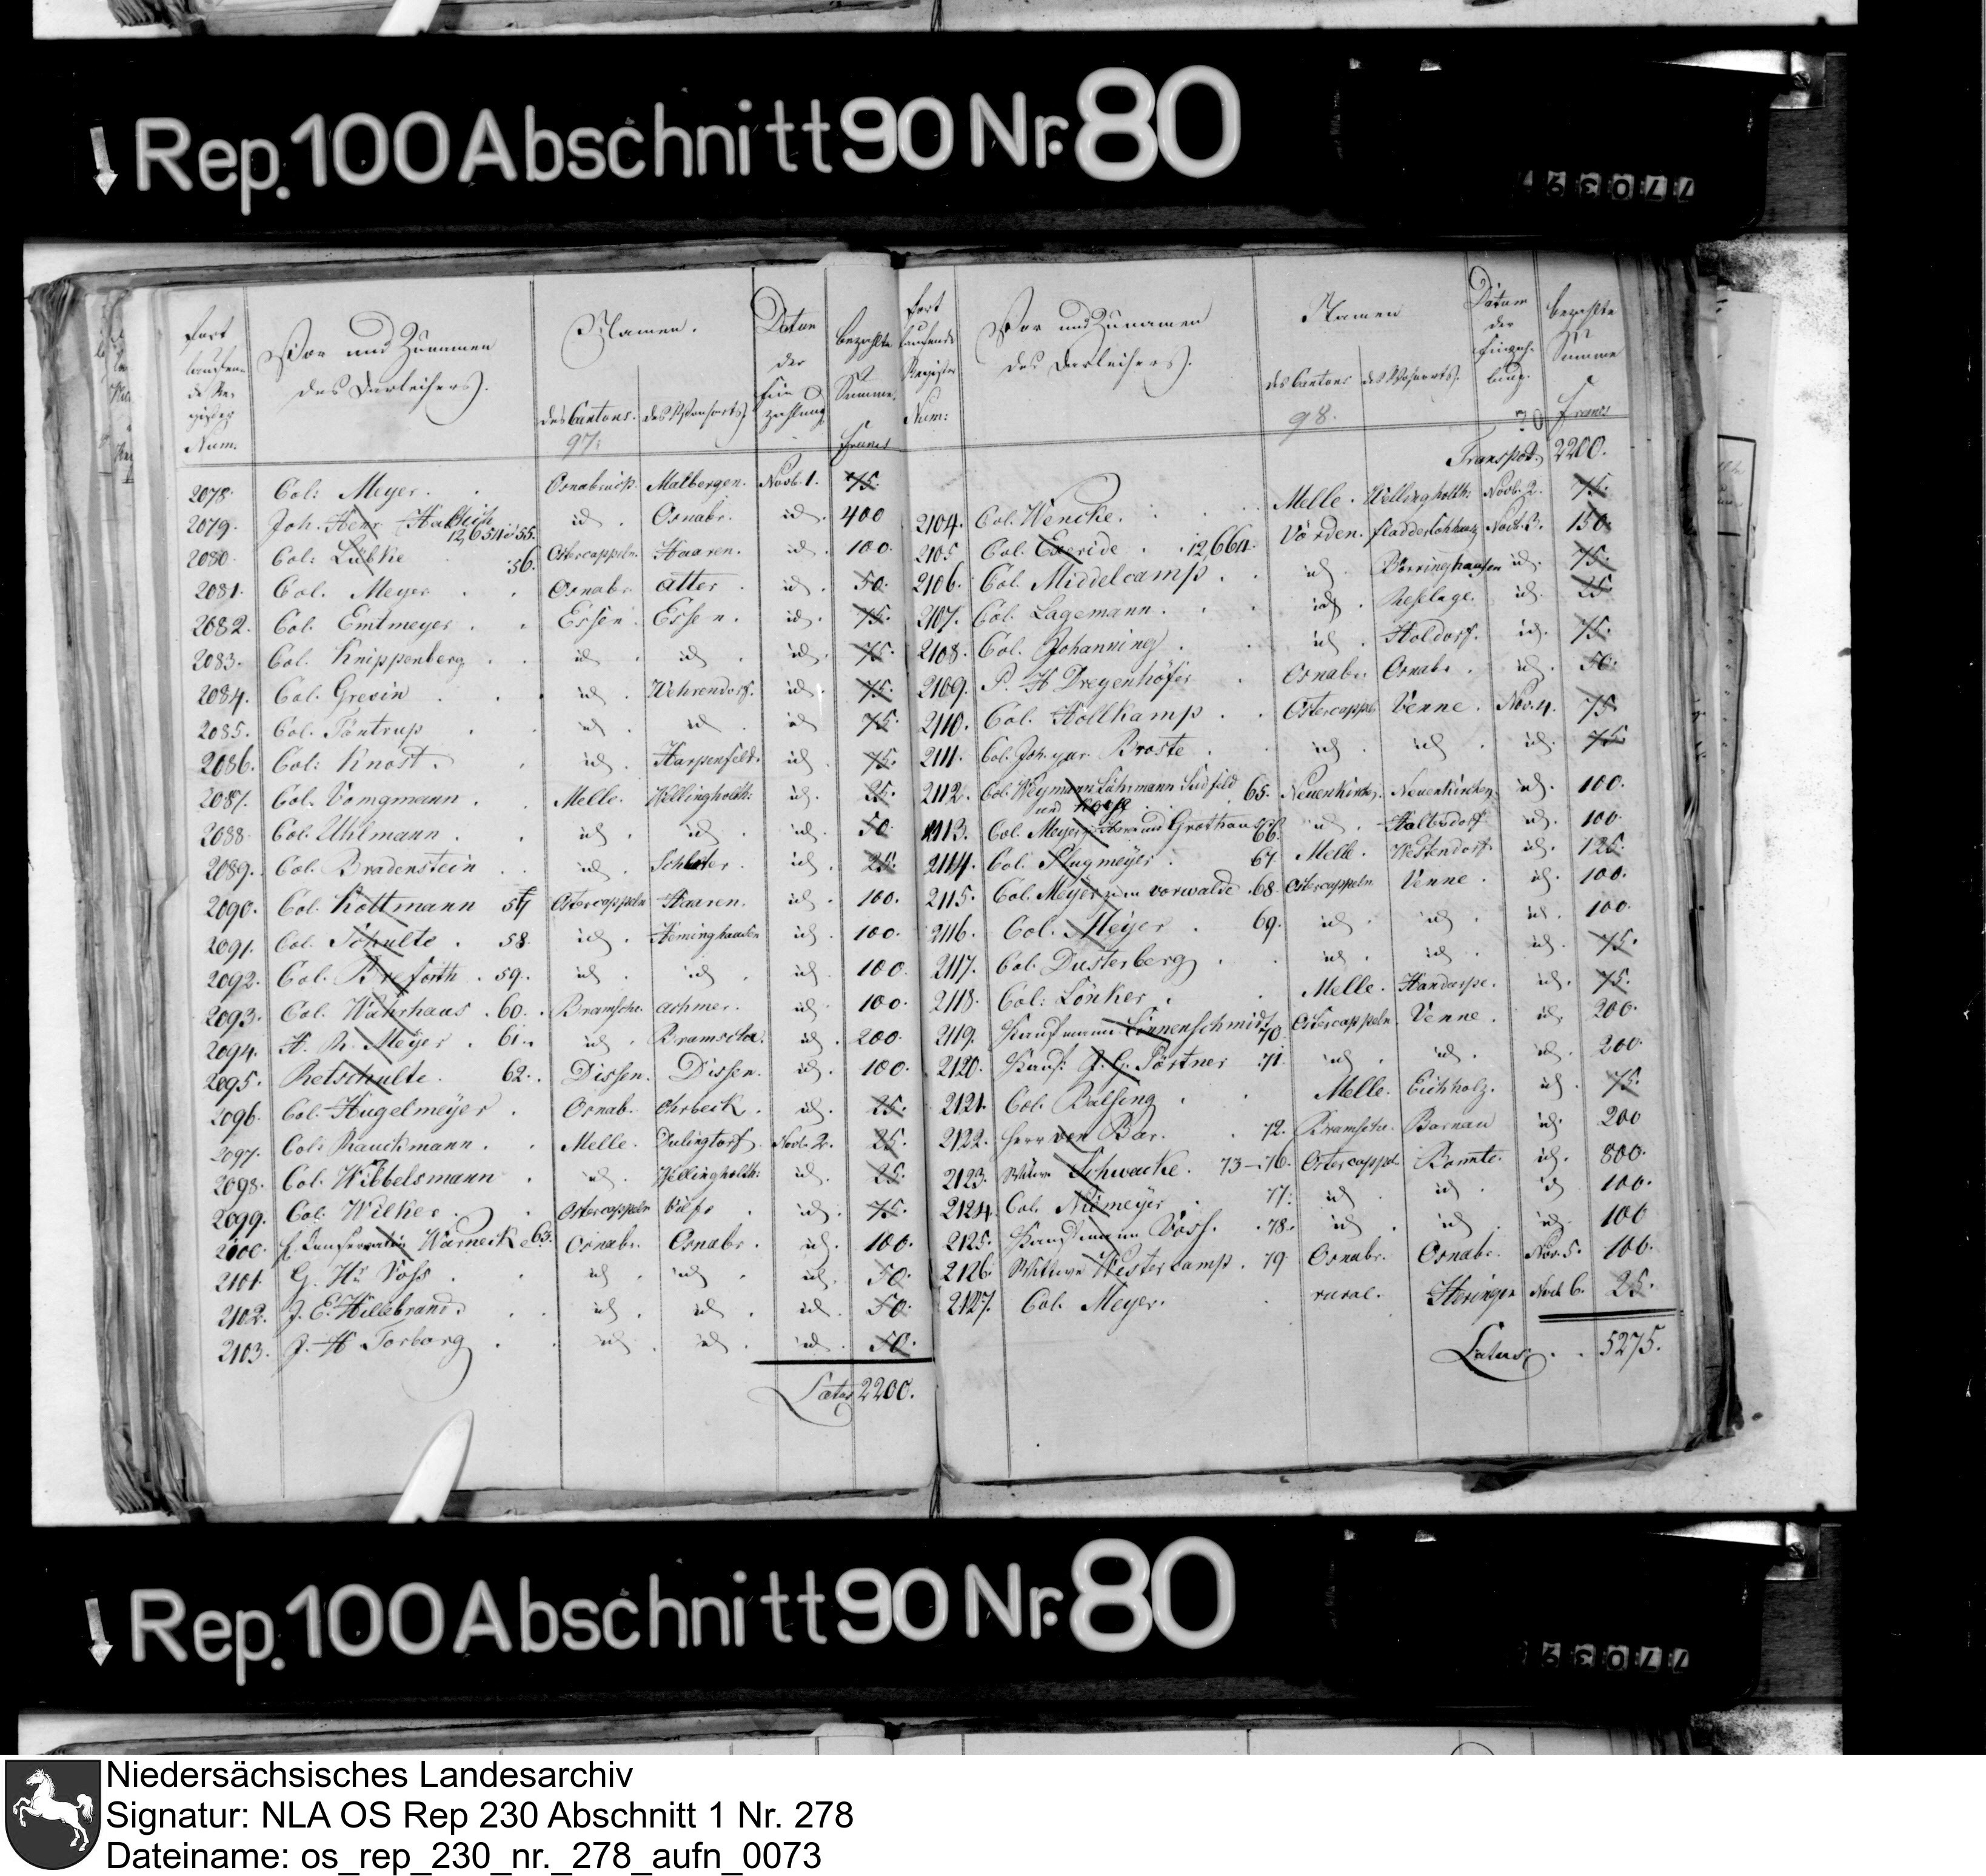 Rep. 100 Abschnitt 90 Nr. 80
77039
Fort laufen- de Re- gister Num.
Vor und Zunamen des Darleihers.
Namen.
des Cantons. des Wohnorts.
97.
Datum der Ein zahlung
bezahlte Summe.
Francs
2078. Col: Meyer. Osnabrück. Malbergen. Novb. 1. 75.
2079. Joh. Henr. 12,654 id 55. id. Osnabr. id. 400
2080. Col: Lübke 56. Ostercappeln. Haaren. id. 100.
2081. Col. Meyer Osnabr. Atter id. 50.
2082. Col. Emtmeyer. Essen. Essen. id. 75.
2083. Col. Knippenberg id id id. 75.
2084. Col. Gresin id. Wehrendorf. id. 75.
2085. Col. Pöntrup id. id. id 75.
2086. Col: Knost. id. Harpenfeld. id. 75.
2087. Col. Vomgmann. Melle. Wellingholth: id. 25.
2088 Col. Uhlmann. id. id. id. 50.
2089. Col. Bradenstein id. id. 25.
2090. Col. Kottmann 57 Ostercappeln Haaren. id. 100.
2091. Col. Schulte. 58. id. Heminghausen id. 100.
2092. Col. 59. id. id. id. 100.
2093. Col. Wahrhaus. 60. Bramsche. Achmer. id. 100.
2094. H. R. Meyer. 61. id. Bramsche. id. 200.
2095. Retschulte. 62. Dissen. Dissen. id. 100.
2096. Col. Hugelmeyer. Osnab. Ohrbeck. id. 25.
2097. Col: Rauckmann. Melle. Novb. 2. 25.
2098. Col. Wibbelsmann id. Wellingholth: id. 25.
2099. Col. Wilker. Ostercappeln id. 75.
2100. Warneck 63. Osnabr. Osnabr. id. 100.
2101. G. Hr. Voss. id. id. id. 50.
2102. J. E. Hillebrand. id. id. id. 50.
2103. J. H Torborg id. id. id. 50.
Latus 2200.
Fort laufende Register Num:
Vor und Zunamen des Darleihers.
Namen
des Cantons des Wohnorts.
98.
Datum der Einzah- lung.
bezahlte Summe
Francs
Transpot. 2200.
2104. Col. Wencke. Melle. Wellingholth: Novb. 2. 75.
2105 Col. Exeride 12,664. Vörden. Novb. 3. 150.
2106. Col. Middelcamp. id. Börringhausen id. 75.
2107. Col. Lagemann. id. Reselage. id. 25.
2108. Col. Johanning. id. Holdorf. id. 75.
2109. P. H Dreyenhöfer Osnabr. Osnabr. id. 50.
2110. Col. Hollkamp. Ostercappl. Venne. Nov. 4. 75
2111. Col. Joh. Broste. id. id. id. 75.
2112. Col. Weymann Lührmann Südfeld 65. Neuenkirchen. Neuenkirchen. id. 100.
und
2113. Col. Meyer und Grothaus 66. id. id. 100.
2114. Col. Plugmeyer. 67. Melle. Westendorf. id. 125.
2115. Col. Meyer zum vorwalde. 68. Ostercappeln Venne. id. 100.
2116. Col. Meyer. 69. id. id. id. 100.
2117. Col. Dusterberg. id. id. id. 75.
2118. Col: Lönker. Melle. Handarpe. id. 75.
2119. Kaufmann Linnenschmidt 70 Ostercappeln. Venne. id. 200.
2120. Kaufm: J. G. Pörstner 71. id. id. id. 200.
2121. Col. Balsing Melle. Eichholz. id. 75.
2122. Herr von Bar. 72. Bramsche. Barnau id. 200
2123. Wittwe Schwacke. 73–76. Ostercappel. Bomte. id. 800.
2124. Col. Niemeyer 77. id. id. id 100.
2125. Kaufmann Voss. 78. id. id. id. 100
2126. Wittwe Westercamp. 79 Osnabr. Osnabr. Nov. 5. 100.
2127. Col. Meyer. rural. Heringen Novb 6. 25.
Latus. 5275.
Rep. 100 Abschnitt 90 Nr. 80
77039
Niedersächsisches Landesarchiv
Signatur: NLA OS Rep 230 Abschnitt 1 Nr. 278
Dateiname: os_rep_230_nr._278_aufn_0073